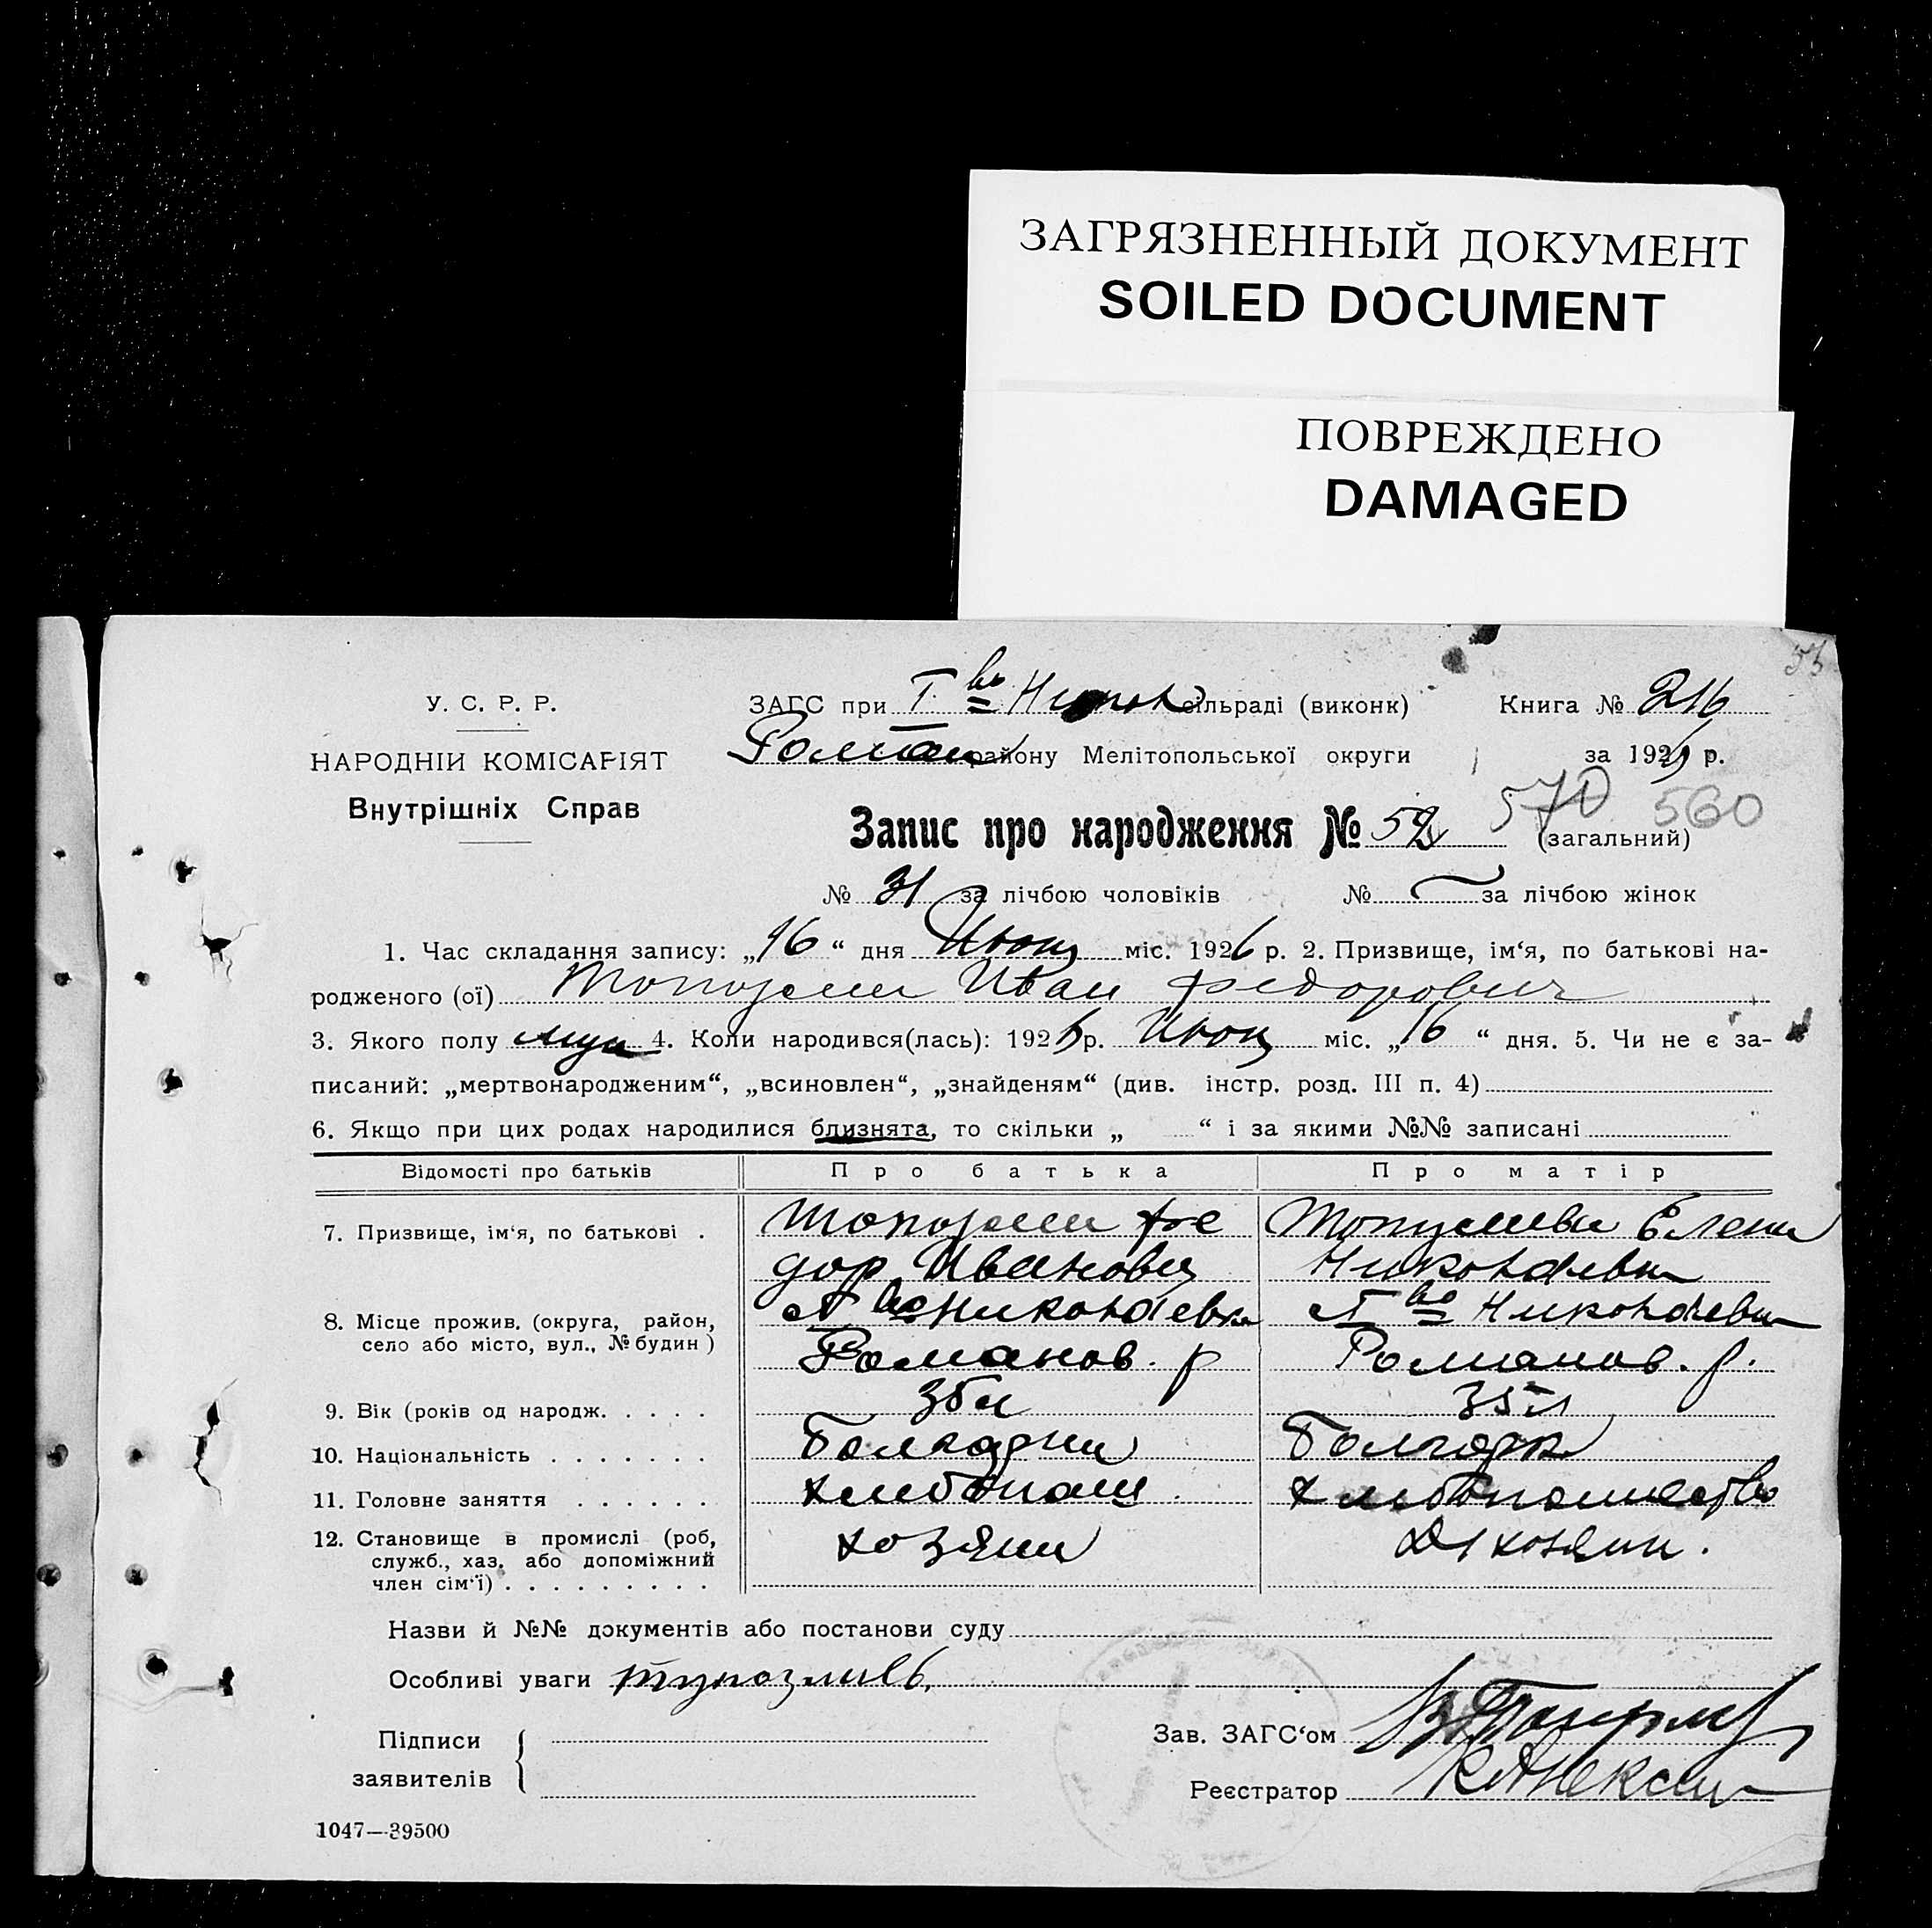 ЗАГРЯЗНЕННЫЙ ДОКУМЕНТ
SOILED DOCUMENT
ПОВРЕЖДЕНО
DAMAGED
У. С. Р. Р.
НАРОДНІЙ КОМІСАРІЯТ
Внутрішніх Справ
ЗАГС при сільраді (виконк) Книга № 216
Роман району Мелітопольської округи за 192 р.
Запис про народження № 570 560 (загальний)
№ 31 за лічбою чоловіків № за лічбою жінок
1. Час складання запису: „16“ дня Июня міс. 1926 р. 2. Призвище, ім‘я, по батькові на-
родженого (ої) Иван Федорович
3. Якого полу муж 4. Коли народився(лась): 1926 р. Июня міс. „16“ дня. 5. Чи не є за-
писаний: „мертвонародженим“, „всиновлен“, „знайденям“ (див. інстр. розд. III п. 4)
6. Якщо при цих родах народилися близнята, то скільки „ “ і за якими №№ записані
Відомості про батьків Про батька Про матір
7. Призвище, ім‘я, по батькові . Фе Елена
дор Иванович Николаевна
8. Місце прожив. (округа, район, Николаевка Николаевка
село або місто, вул., № будин) Романов. р Романов. р.
9. Вік (років од народж. . . . . 36л 35л
10. Національність . . . . . . . Болгарин Болгарка
11. Головне заняття . . . . . . хлебопаш хлебопашество
12. Становище в промислі (роб, хозяин
служб., хаз. або допоміжний
член сім‘ї) . . . . . . . . .
Назви й №№ документів або постанови суду
Особливі уваги
Підписи
заявителів
Зав. ЗАГС‘ом
Реєстратор
1047—39500